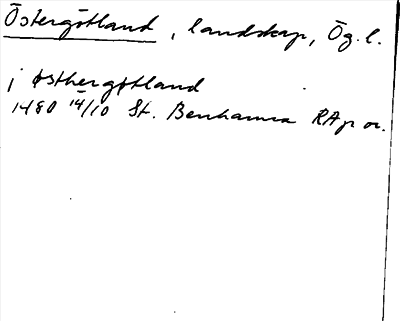 Östergötland, landskap, Ög. l.
i østhergøtland
1480 14/10 St. Benhamra RAp or.